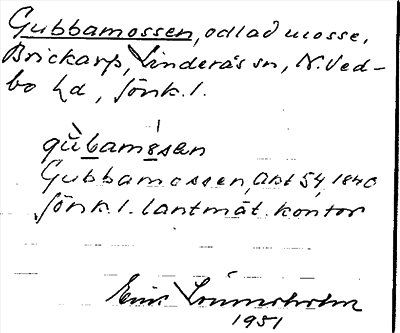 Gubbamossen, odlad mosse,
Brickarp, Linderås sn, N. Ved-
bo hd, Jönk. l.
gùbamósen
Gubbamossen, Akt 54, 1840
Jönk. l. lantmät. kontor
1951